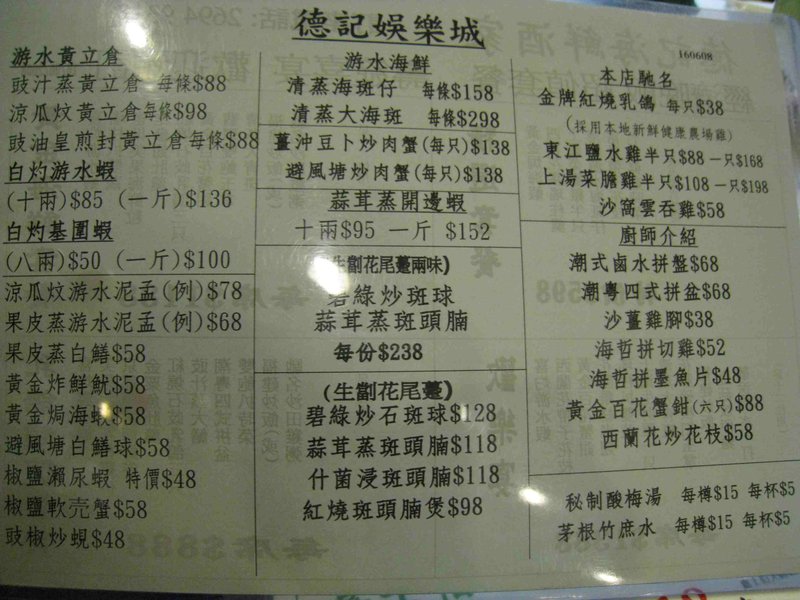 德記娛樂城
160608
游水黃立倉
豉汁蒸黃立倉每條$88
涼瓜炆黃立倉每條$98
豉油皇煎封黃立倉每條$88
白灼游水蝦
(十兩)$85 (一斤)$136
白灼基圍蝦
(八兩)$50 (一斤)$100
涼瓜炆游水泥孟(例)$78
果皮蒸游水泥孟(例)$68
果皮蒸白鱔$58
黃金炸鮮魷$58
黃金焗海蝦$58
避風塘白鱔球$58
椒鹽瀨尿蝦 特價$48
椒鹽軟壳蟹$58
豉椒炒蜆$48
游水海鮮
清蒸海斑仔 每條$158
清蒸大海斑 每條$298
薑沖豆卜炒肉蟹(每只)$138
避風塘炒肉蟹(每只)$138
蒜茸蒸開邊蝦
十兩$95 一斤 $152
(生劏花尾躉兩味)
碧綠炒斑球
蒜茸蒸斑頭腩
每份$238
(生劏花尾躉)
碧綠炒石斑球$128
蒜茸蒸斑頭腩$118
什菌浸斑頭腩$118
紅燒斑頭腩煲$98
本店馳名
金牌紅燒乳鴿 每只$38
(採用本地新鮮健康農場雞)
東江鹽水雞半只$88 一只$168
上湯菜膽雞半只$108 一只$198
沙窩雲吞雞$58
廚師介紹
潮式鹵水拼盤$68
潮粵四式拼盆$68
沙薑雞腳$38
海哲拼切雞$52
海哲拼墨魚片$48
黃金百花蟹鉗(六只)$88
西蘭花炒花枝$58
秘制酸梅湯 每樽$15 每杯$5
茅根竹庶水 每樽$15 每杯$5